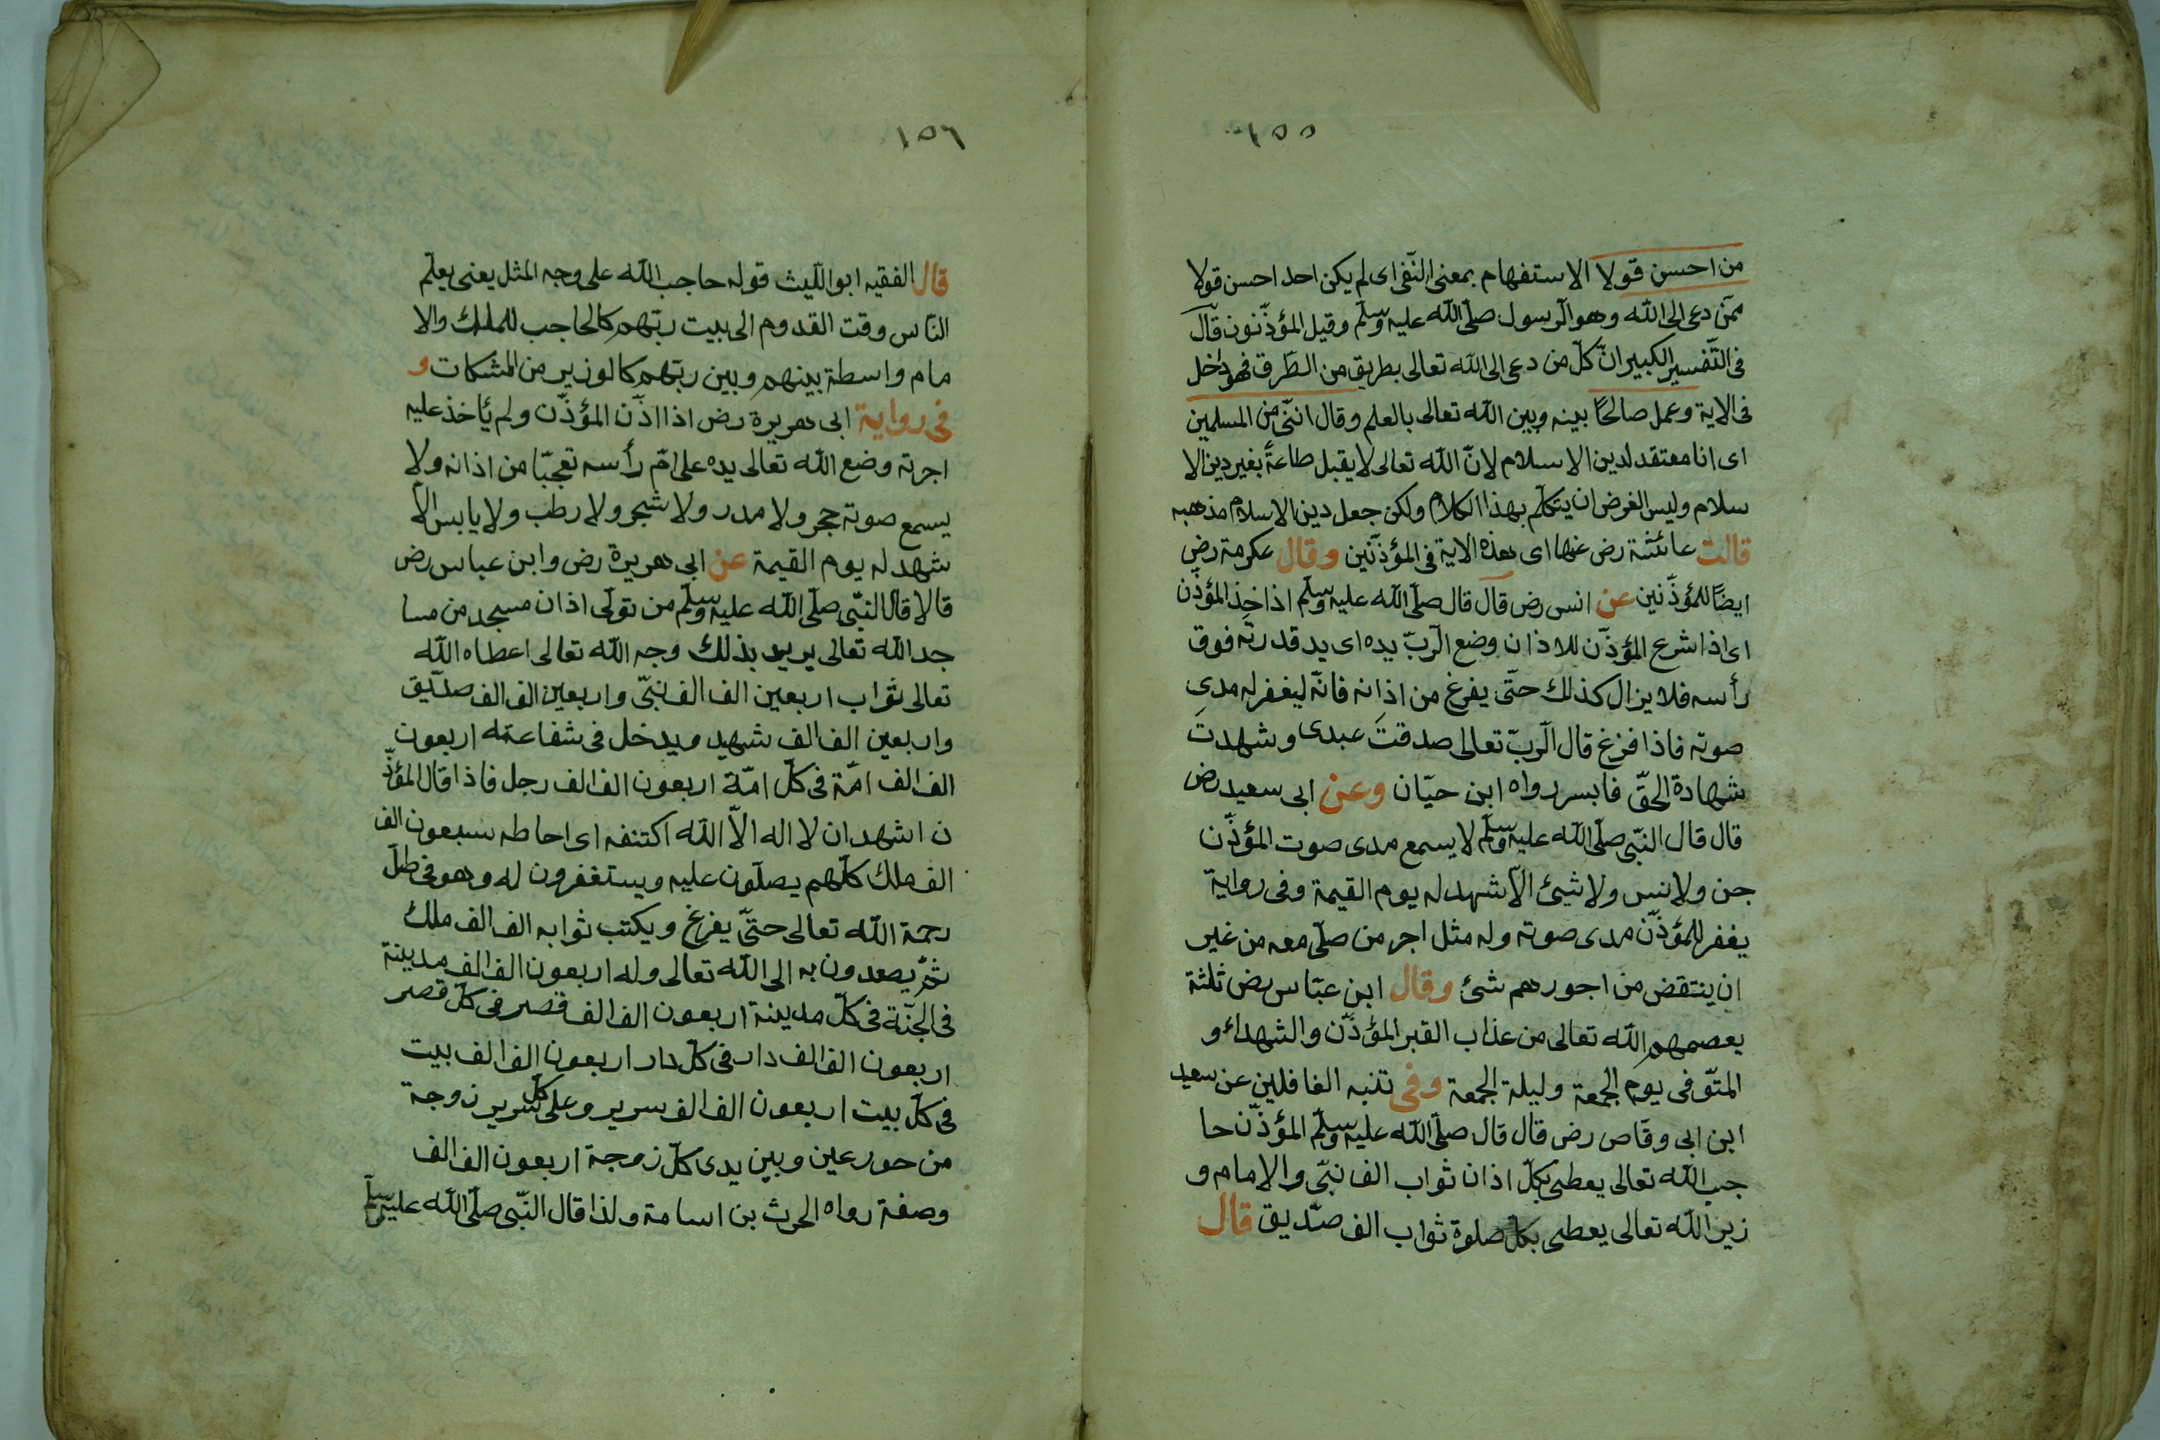 ١٥٥
من احسن قولا الاستفهام بمعنى النّفى اى لم يكن احد احسن قولا
ممّن دعى الى اللّه وهو الرّسول صلّى اللّه عليه وسلّم وقيل المؤذّنون قال
فى التّفسير الكبير انّ كلّ من دعى الى اللّه تعالى بطريق من الطّرق فهو داخل
فى الاية وعمل صالحًا بينه وبين اللّه تعالى بالعلم وقال انّنى من المسلمين
اى انا معتقد لدين الاسلام لانّ اللّه تعالى لا يقبل طاعةً بغير دين الا
سلام وليس الغرض ان يتكلّم بهذا الكلام ولكن جعل دين الاسلام مذهبه
قالت عائشة رض عنها اى هذه الاية فى المؤذّنين وقال عكرمة رض
ايضًا للمؤذّنين عن انس رض قال قال صلّى اللّه عليه وسلّم اذا اخذ المؤذّن
اى اذا شرع المؤذّن للاذان وضع الرّبّ يده اى يد قدرته فوق
رأسه فلا يزال كذلك حتّى يفرغ من اذانه فانّه ليغفر له مدى
صوته فاذا فرغ قال الرّبّ تعالى صدقتَ عبدى وشهدتَ
شهادة الحقّ فابسر رواه ابن حيّان وعن ابى سعيد رض
قال قال النّبى صلّى اللّه عليه وسلّم لا يسمع مدى صوت المؤذّن
جن ولا نس ولا شيئ الّا شهد له يوم القيمة وفى رواية
يغفر للمؤذّن مدى صوته وله مثل اجر من صلّى معه من غير
ان ينتقض من اجورهم شئ وقال ابن عبّاس رض ثلثة
يعصمهم اللّه تعالى من عذاب القبر المؤذّن والشهداء و
المتوّفى يوم الجمعة وليلة الجمعة وفى تنبه الغافلين عن سعيد
ابن ابى وقاص رض قال قال صلّى اللّه عليه وسلّم المؤذّن حا
جب اللّه تعالى يعطى بكلّ اذان ثواب الف نبّى والامام و
زير اللّه تعالى يعطى بكلّ صلوة ثواب الف صدّيق قال
١٥٦
قال الفقيه ابو اللّيث قوله حاجب اللّه على وجه المثل يعنى يعلّم
النّاس وقت القدوم الى بيت ربّهم كالحاجب للملك والا
مام واسطة بينهم وبين ربّهم كالوزير من المشكات و
فى رواية ابى هريرة رض اذا اذّن المؤذّن ولم يأخذ عليه
اجرته وضع اللّه تعالى يده على امّ رأسه تعجّبًا من اذانه ولا
يسمع صوته حجر ولا مدر ولا شجر ولا رطب ولا يابس الّا
شهد له يوم القيمة عن ابى هريرة رض وابن عباس رض
قالا قال النّبّى صلّى اللّه عليه وسلّم من تولّى اذان مسجد من مسا
جد اللّه تعالى يريد بذلك وجه اللّه تعالى اعطاه اللّه
تعالى ثواب اربعين الف الف نبّى واربعين الف الف صدّيق
واربعين الف الف شهيد ويدخل فى شفاعته اربعون
الف الف امّة فى كلّ امّة اربعون الف الف رجل فاذا قال المؤذّ
ن اشهد ان لا اله الّا اللّه اكتنفه اى احاطه سبعون الف
الف ملك كلّهم يصلّون عليه ويستغفرون له وهو فى ظلّ
رحمة اللّه تعالى حتّى يفرغ ويكتب ثوابه الف الف ملك
ثمّ يصعدون به الى اللّه تعالى وله اربعون الف الف مدينة
فى الجنّة فى كلّ مدينة اربعون الف الف قصر فى كلّ قصر
اربعون الف الف دار فى كلّ دار اربعون الف الف بيت
فى كلّ بيت اربعون الف الف سرير وعلى كلّ سرير زوجة
من حور عين وبين يدى كلّ زوجة اربعون الف الف
وصفة رواه الحرث بن اسامة ولذا قال النّبّى صلّى اللّه عليه وسلّم